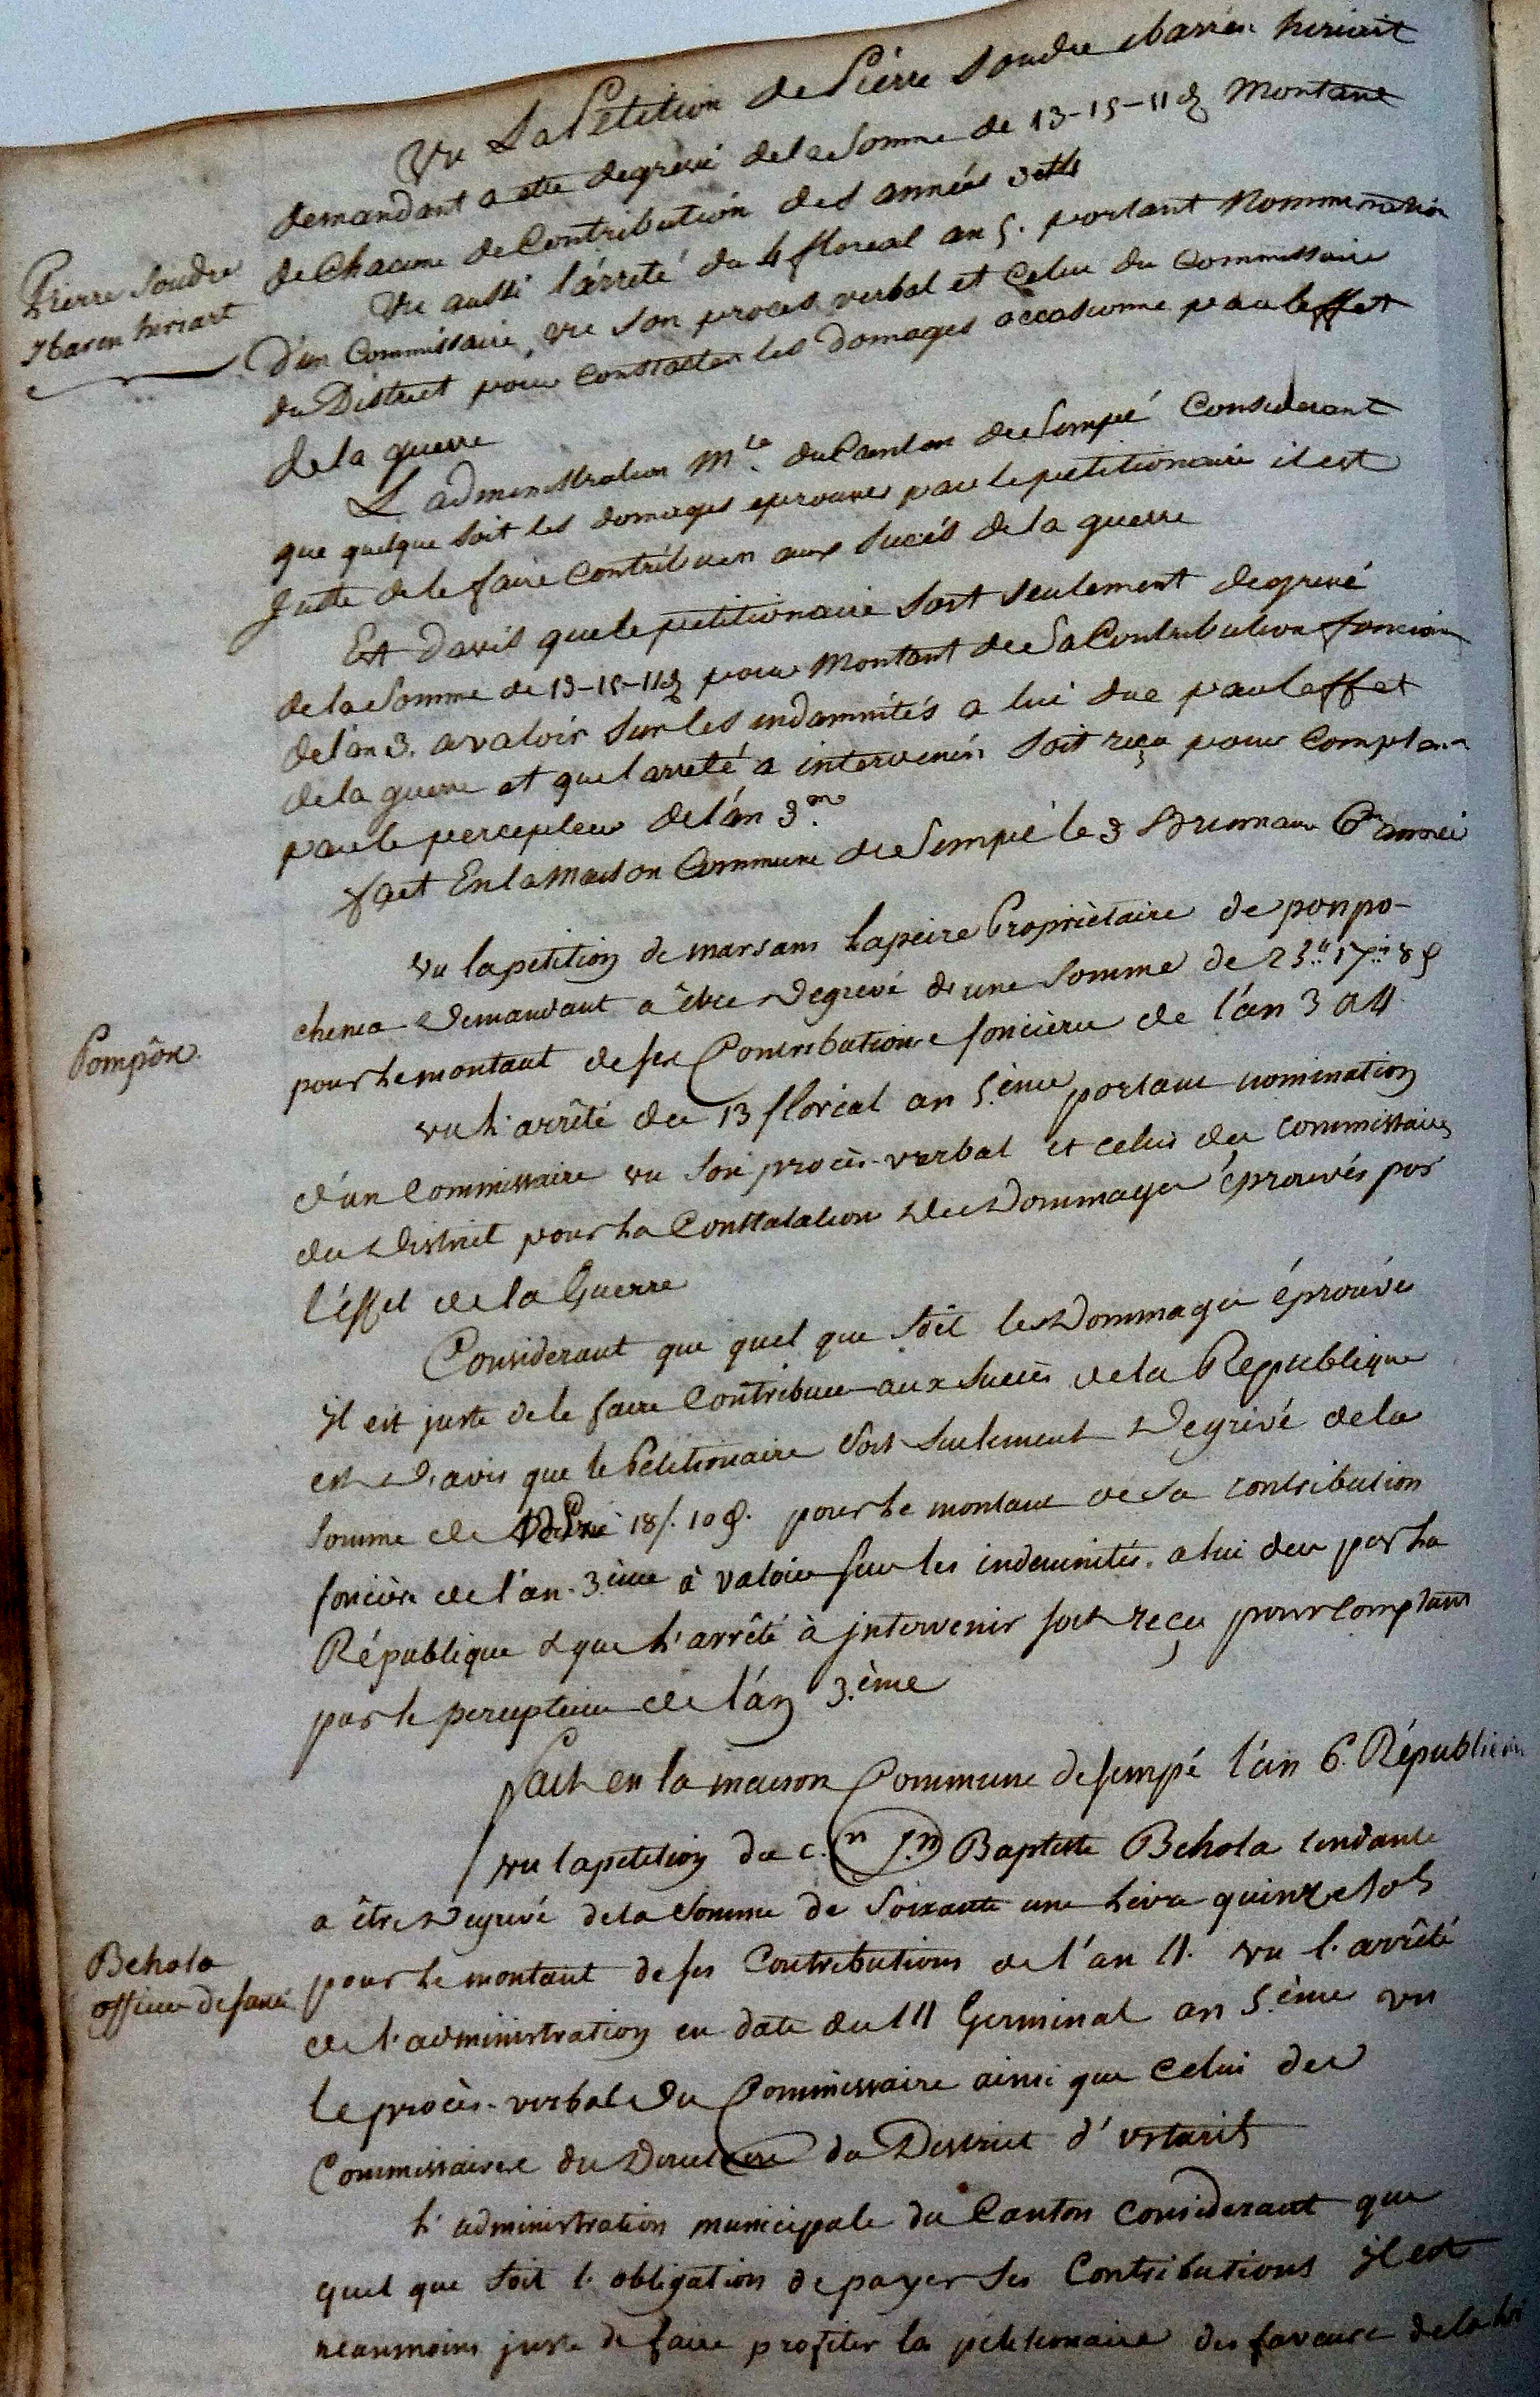 Vu La Petition de Pierre Soudre ibarren hiriart
demandant a etre degrevé de la Somme de 13-15-11 d montant
de Chacune de Contribution des années 3 et 4
Pierre Soudre
ybaren hiriart
Vu aussi l'arreté du 4 floreal an 5. portant Nommination
d'un Commissaire, vu Son proces verbal et Celui du Commissaire
du District pour Constater les domages occasionne par leffet
de la guerre
L administration Mle du Canton de Sempé Considerant
que quelque soit les domages eprouves par le petitionaire il est
juste de le faire Contribuer aux Succés de la guerre
Est Davis que le petitionaire soit seulement degrevé
de la Somme de 13-15-11 d pour Montant de Sa Contribution fonciere
de lan 3. a valoir Sur les indamnités a lui due par leffet
de la guerre et que larreté a intervenir Soit reçu pour Comptant
par le percepteur de l'an 3me
fait En la Maison Commune de Sempé le 3 Brumaire 6me année
Pompôn
Vu la petition de marsans Lapeire Propriètaire de pompo-
chenea Demandant a être Degrevé de une Somme de 23" 17" 8 d
pour Le montant de ses Contributions foncières de l'an 3 et 4
vu L'arrêté du 13 floréal an 5.ème portant nomination
d'un Commissaire vu Son procès-verbal et celui du Commissaire
du District pour La Constatation des Dommages éprouvés par
l'éffet de la Guerre
Considerant que quel que soit les Dommages éprouvés
il est juste de le faire Contribuer aux Succès de la République
est D'avis que le Petitionaire soit seulement Degrévé de la
Somme de 18 s. 10 d. pour Le montant de sa contribution
foncière de l'an 3ème à valoir sur les indemnités a lui due par La
République & que L'arrêté à jntervenir soit reçu pour Comptant
par le percepteur de l'an 3.ème
fait en la maison Commune de sempé l'an 6.e Républicain
Vu la petition du c.en J.n Baptiste Behola tendante
a être Degrevé de la Somme de Soixante une Livre quinze sols
Behola
officier de santé
pour le montant de ses Contributions de l'an 4. vu l'arrêté
de l'administration en date du 14 Germinal an 5.ème vu
le procès-verbal du Commissaire ainsi que celui des
Commissaires du Directoire du District d'ustarits
L'administration municipale du Canton considerant que
quel que soit l'obligation de payer ses Contributions il est
neanmoins juste de faire profiter le pétitionaire des faveurs de la loi